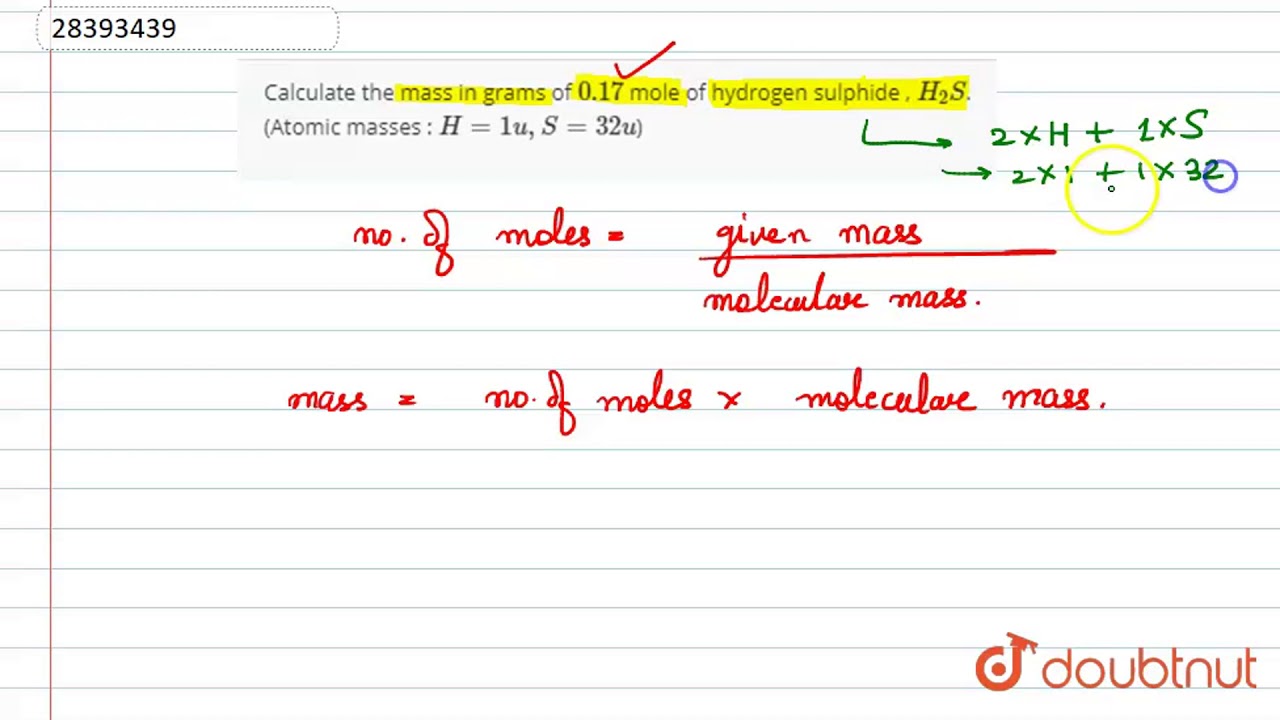 28393439
Calculate the mass in grams of 0.17 mole of hydrogen sulphide , H₂S.
(Atomic masses : H = 1u, S = 32u)
2 × H + 1 × S
2 × 1 + 1 × 32
no. of moles = given mass
molecular mass.
mass = no. of moles × molecular mass.
doubtnut